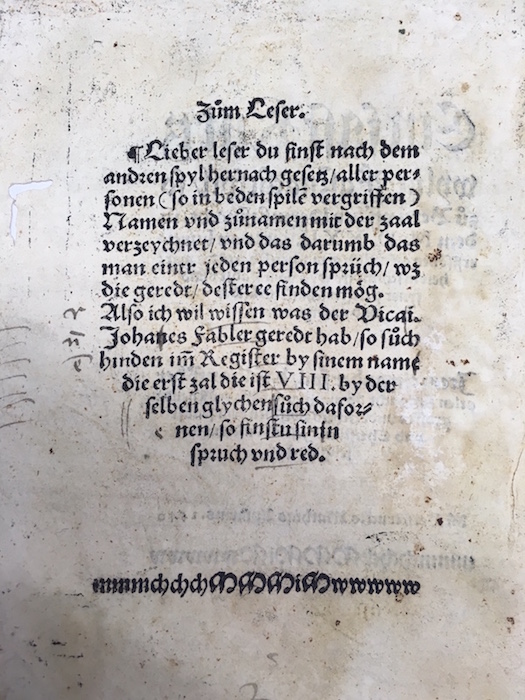 Zům Leser.
¶Lieber leser du finst nach dem
andren spyl hernach gesetz/aller per⸗
sonen (so in beden spilē vergriffen)
Namen vnd zůnamen mit der zaal
verzeychnet/vnd das darumb das
man einer jeden person sprüch/wz
die geredt/dester ee finden mög.
Also ich wil wissen was der Vicai.
Johanes Fabler geredt hab/so sůch
hinden im̄ Register by sinem name
die erst zal die ist VIII. by der
selben glychen sůch dafor⸗
nen/so finstu sinin
spruch vnd red.